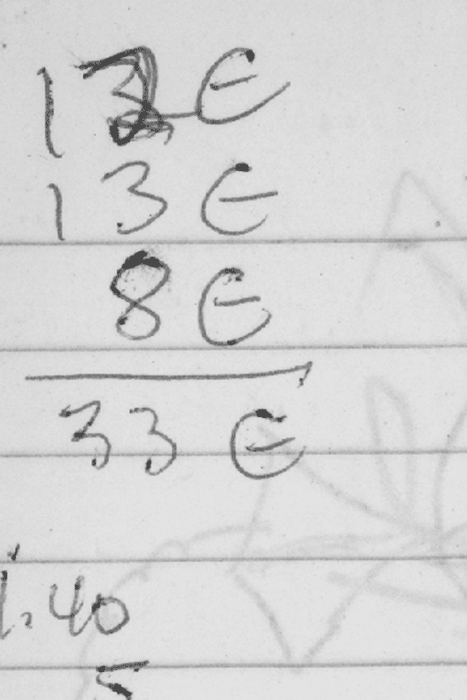 12 €
13 €
8 €
33 €
1.40
5